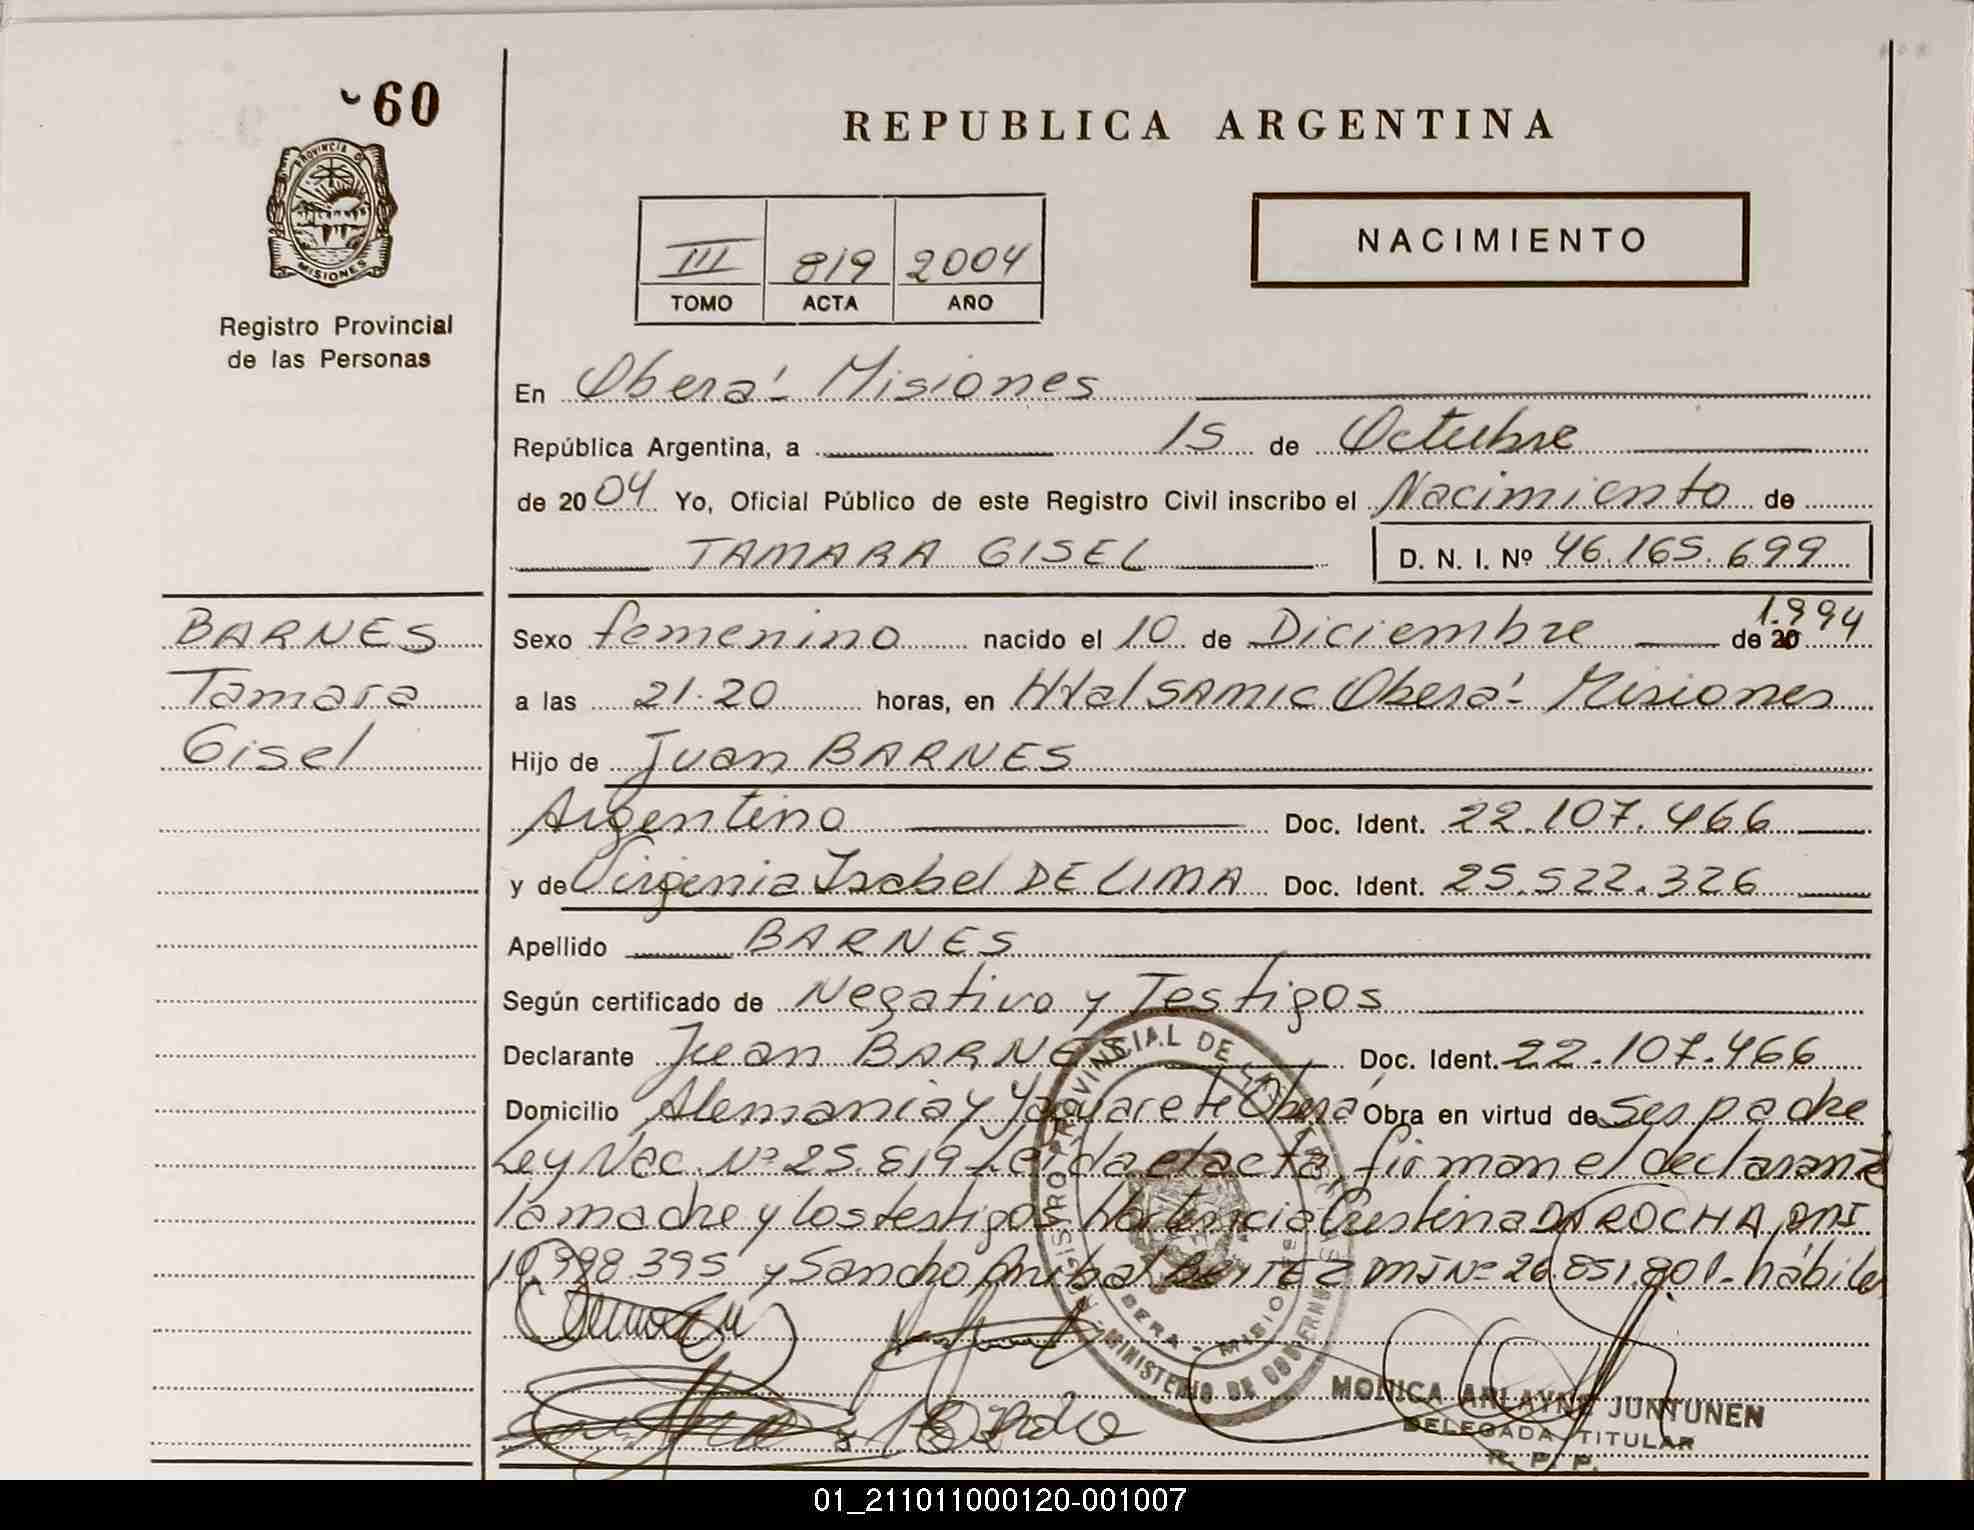 60
REPUBLICA ARGENTINA
PROVINCIA DE
MISIONES
Registro Provincial
de las Personas
III 819 2004
TOMO ACTA AÑO
NACIMIENTO
En Oberá - Misiones
República Argentina, a 15 de Octubre
de 2004 Yo, Oficial Público de este Registro Civil inscribo el Nacimiento de
TAMARA GISEL D. N. I. Nº 46.165.699
BARNES
Tamara
Gisel
Sexo femenino nacido el 10 de Diciembre de 20 1.994
a las 21.20 horas, en Htal SAMIC Oberá - Misiones
Hijo de Juan BARNES
Argentino Doc. Ident. 22.107.466
y de Virginia Isabel DE LIMA Doc. Ident. 25.522.326
Apellido BARNES
Según certificado de Negativo y Testigos
Declarante Juan BARNES Doc. Ident. 22.107.466
Domicilio Alemania y Yaguarete Oberá Obra en virtud de Ser padre
Ley Nac. Nº 25.819 Leída el acta, firman el declarante
la madre y los testigos Hortencia Cristina DA ROCHA, DNI
.998.395 y Sancho Anibal DNI Nº 26.851.801 - hábiles
REGISTRO PROVINCIAL DE LAS PERSONAS
OBERA - MISIONES
MINISTERIO DE GOBIERNO
MONICA ARLAYNE JUNTUNEN
DELEGADA TITULAR
R. P. P.
01_211011000120-001007